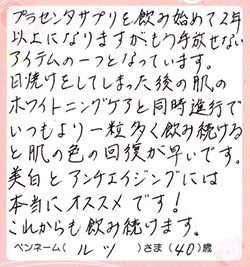 プラセンタサプリを飲み始めて2年
以上になりますが、もう手放せない
アイテムの一つとなっています。
日焼けをしてしまった後の肌の
ホワイトニングケアと同時進行で
いつもより一粒多く飲み続ける
と肌の色の回復が早いです。
美白とアンチエイジングには
本当にオススメです！
これからも飲み続けます。
ペンネーム（ ルッ ）さま（40）歳